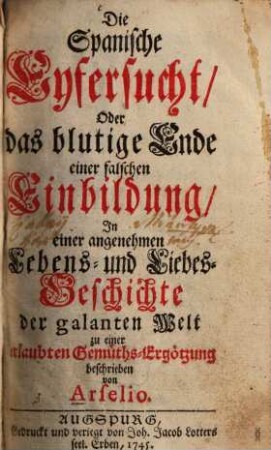 Die
Spanische
Eyfersucht/
Oder
das blutige Ende
einer falschen
Einbildung/
In
einer angenehmen
Lebens- und Liebes-
Geschichte
der galanten Welt
zu einer
erlaubten Gemüths-Ergötzung
beschrieben
von
Arselio.
AUGSPURG,
Gedruckt und verlegt von Joh. Jacob Lotters
seel. Erben, 1745.